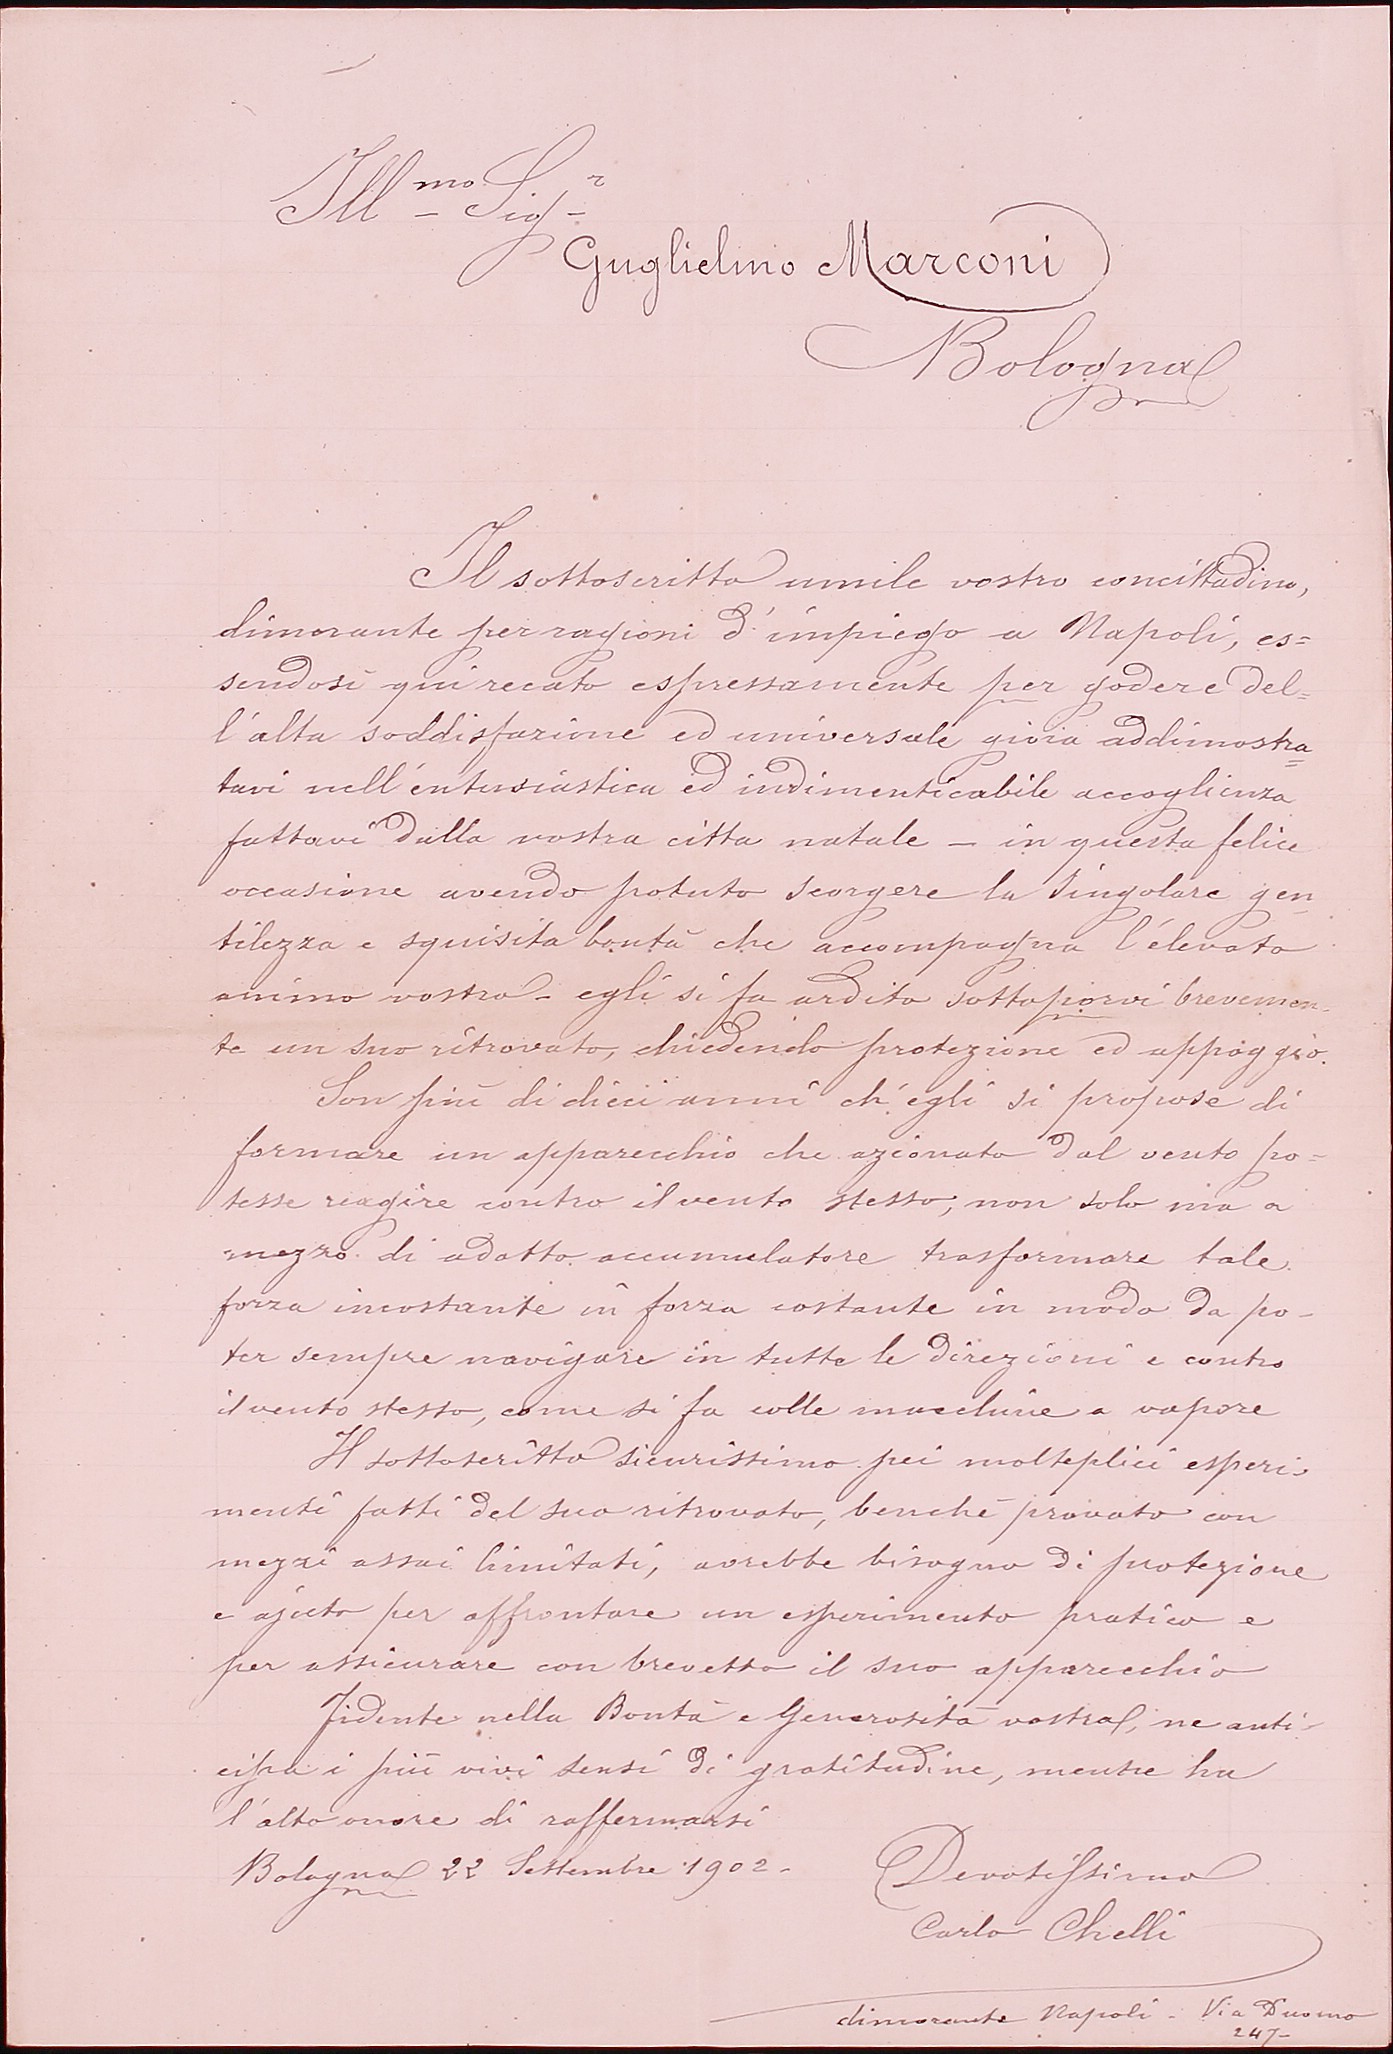 Ill.mo Sig.r
Guglielmo Marconi
Bologna
Il sottoscritto umile vostro concittadino,
dimorante per ragioni d'impiego a Napoli, es=
sendosi qui recato espressamente per godere del=
l'alta soddisfazione ed universale gioia addimostra=
tavi nell'entusiastica ed indimenticabile accoglienza
fattavi dalla vostra citta natale – in questa felice
occasione avendo potuto scorgere la singolare gen
tilezza e squisita bontà che accompagna l'elevato
animo vostro – egli si fa ardito sottoporvi brevemen-
te un suo ritrovato, chiedendo protezione ed appoggio.
Son più di dieci anni ch'egli si propose di
formare un apparecchio che azionato dal vento po=
tesse reagire contro il vento stesso, non solo ma a
mezzo di adatto accumulatore trasformare tale
forza incostante in forza costante in modo da po-
ter sempre navigare in tutte le direzioni e contro
il vento stesso, come si fa colle macchine a vapore
Il sottoscritto sicurissimo pei molteplici esperi-
menti fatti del suo ritrovato, benchè provato con
mezzi assai limitati, avrebbe bisogno di protezione
e ajuto per affrontare un esperimento pratico e
per assicurare con brevetto il suo apparecchio
Fidente nella Bontà e Generosità vostra, ne anti-
cipa i più vivi sensi di gratitudine, mentre ha
l'alto onore di raffermarsi
Bologna 22 Settembre 1902 –
Devotissimo
Carlo Chelli
dimorante Napoli – Via Duomo
247 –